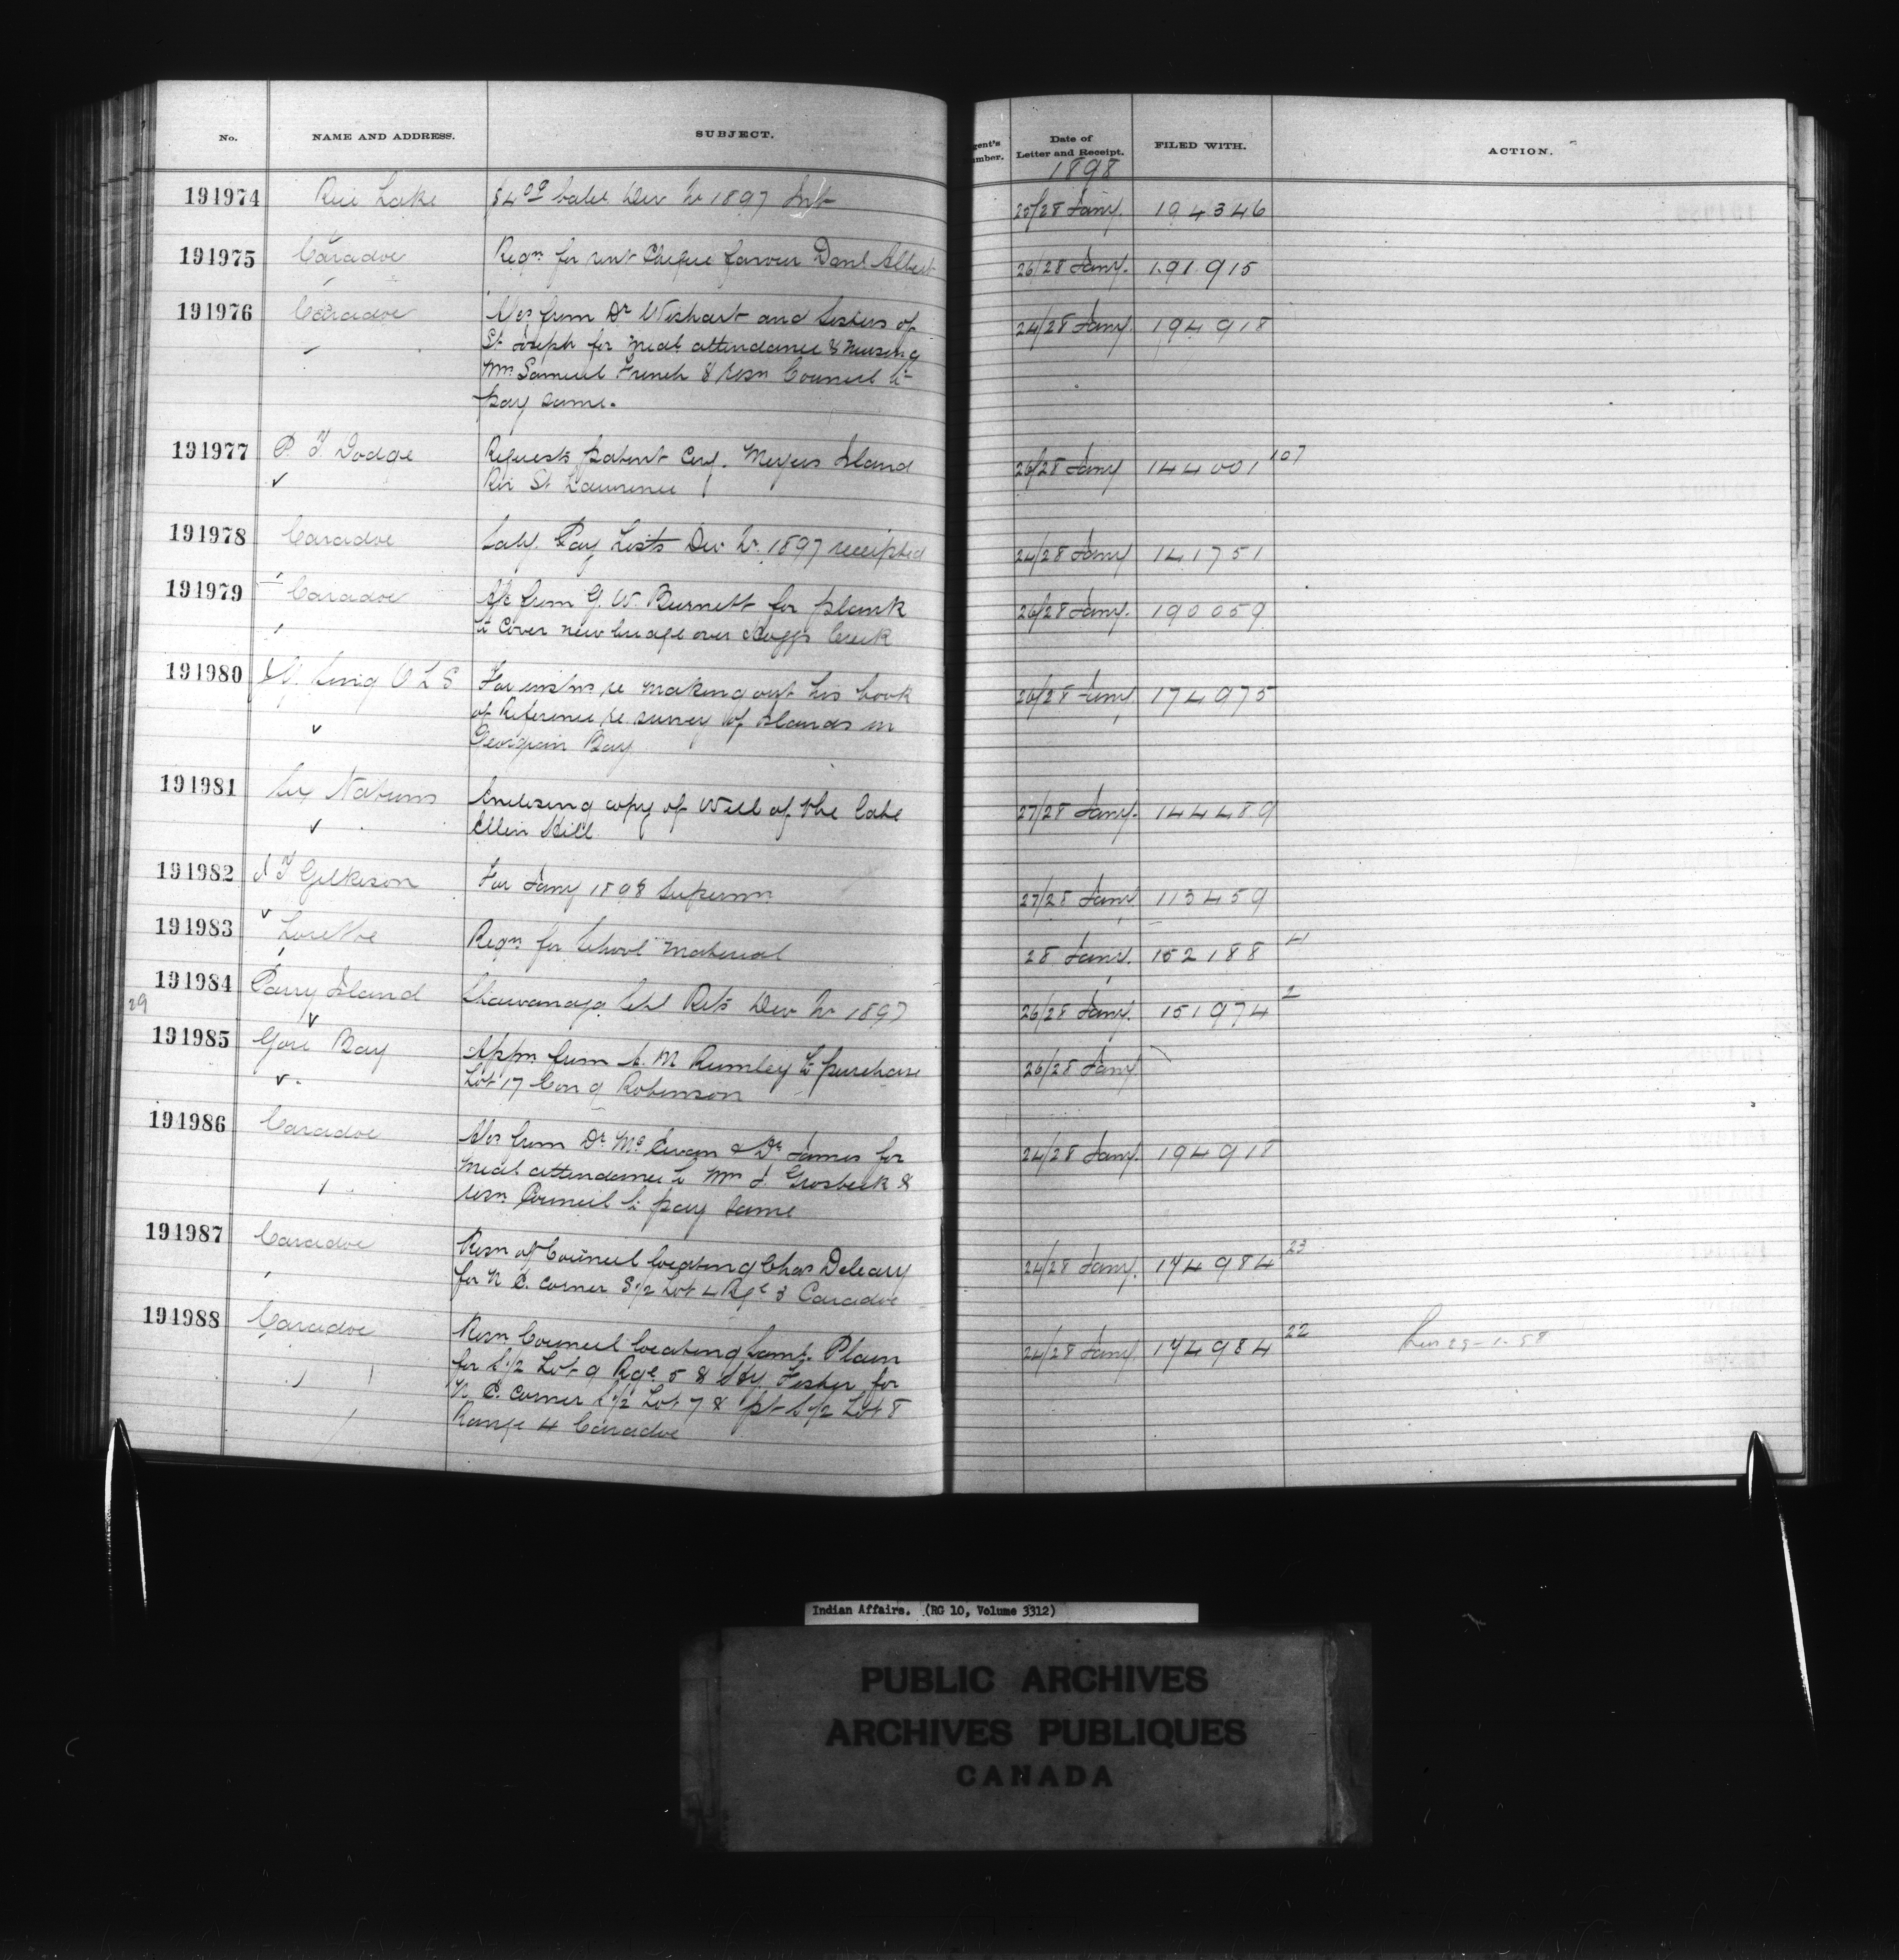 No. NAME AND ADDRESS. SUBJECT. gent's umber. Date of Letter and Receipt. FILED WITH. ACTION.
1898
191974 Rice Lake $4.00 baln Dec Qr 1897 Int 25/28 Jany. 194346
191975 Caradoc Reqn for rent Cheque favour Danl Albert 26/28 Jany. 191915
191976 Caradoc A/cs from Dr Wishart and Sisters of 24/28 Jany. 194918
St Joseph for medl attendance & nursing
Mrs Samuel French & resn Council to
pay same.
191977 P. F. Dodge Requests patent Meyers Island 26/28 Jany 144001 107
Riv St Lawrence
191978 Caradoc Saly. Pay Lists Dec Qr. 1897 receipted 24/28 Jany 141751
191979 Caradoc A/c from G. W. Burnett for plank 26/28 Jany. 190059
to cover new bridge over Creek
191980 O L S For instns re making out his book 26/28 Jany 174975
of Reference re survey of Islands in
Georgian Bay
191981 Six Nations Enclosing copy of Will of the late 27/28 Jany. 144489
Ellen Hill
191982 J T Gilkison For Jany 1898 Superann 27/28 Jany 113459
191983 Lorette Reqn for School material 28 Jany. 152188 4
191984 Parry Island Shawanaga Schl Rets Dec Qr 1897 26/28 Jany. 151974 2
29
191985 Gore Bay Appn from A. M Rumley to purchase 26/28 Jany.
Lot 17 Con 9 Robinson
191986 Caradoc A/cs from Dr McEwan & Dr James for 24/28 Jany. 194918
medl attendance to Wm J. Grosbeck &
resn Council to pay same
191987 Caradoc Resn of Council locating Chas Deleary 24/28 Jany. 174984 23
for N E. corner S 1/2 Lot 4 Rge 3 Caradoc
191988 Caradoc Resn Council locating Saml. Plain 24/28 Jany. 174984 22
for S 1/2 Lot 9 Rge 5 & Hy Fisher for
N E. corner S 1/2 Lot 7 & pt S 1/2 Lot 8
Range 4 Caradoc
Indian Affairs. (RG 10, Volume 3312)
PUBLIC ARCHIVES
ARCHIVES PUBLIQUES
CANADA